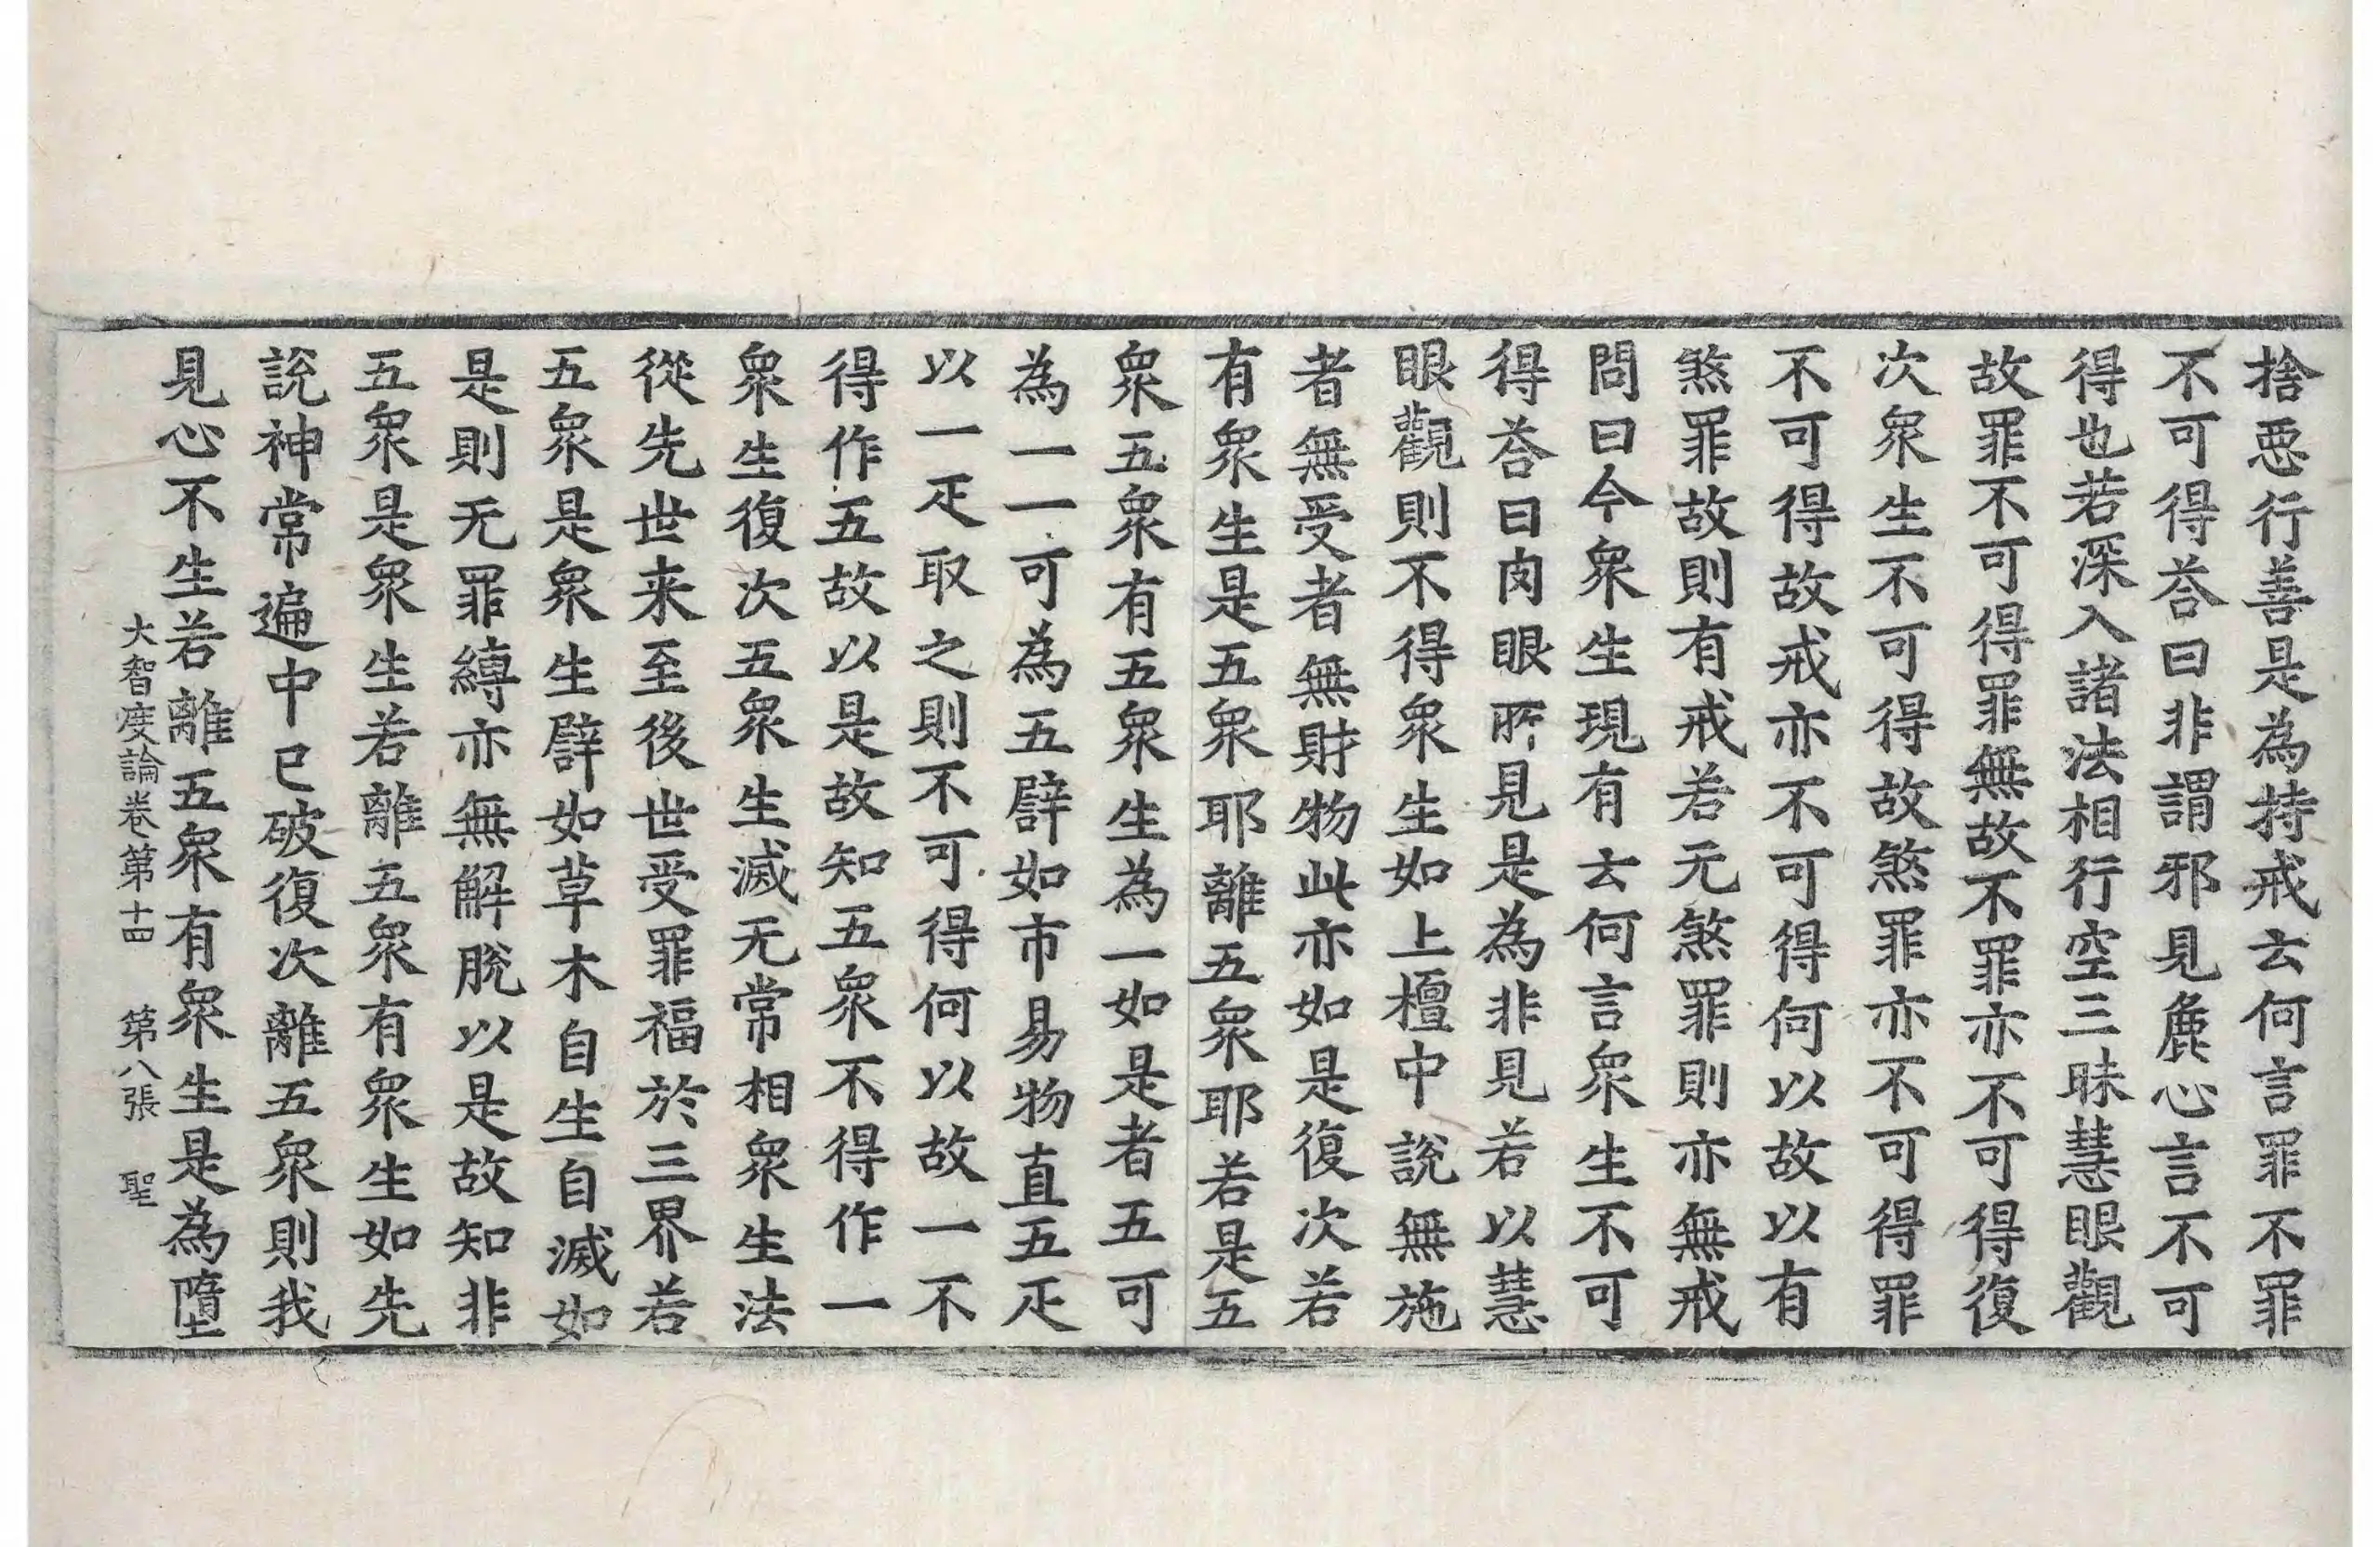 捨惡行善是為持戒云何言罪不罪
不可得荅曰非謂邪見麁心言不可
得也若深入諸法相行空三昧慧眼觀
故罪不可得罪無故不罪亦不可得復
次衆生不可得故煞罪亦不可得罪
不可得故戒亦不可得何以故以有
煞罪故則有戒若无煞罪則亦無戒
問曰今衆生現有云何言衆生不可
得荅曰肉眼所見是為非見若以慧
眼觀則不得衆生如上檀中說無施
者無受者無財物此亦如是復次若
有衆生是五衆耶離五衆耶若是五
衆五衆有五衆生為一如是者五可
為一一可為五譬如市易物直五疋
以一疋取之則不可得何以故一不
得作五故以是故知五衆不得作一
衆生復次五衆生滅无常相衆生法
從先世来至後世受罪福於三界若
五衆是衆生譬如草木自生自滅如
是則无罪縛亦無解脫以是故知非
五衆是衆生若離五衆有衆生如先
說神常遍中已破復次離五衆則我
見心不生若離五衆有衆生是為墮
大智度論卷第十四 第八張 聖